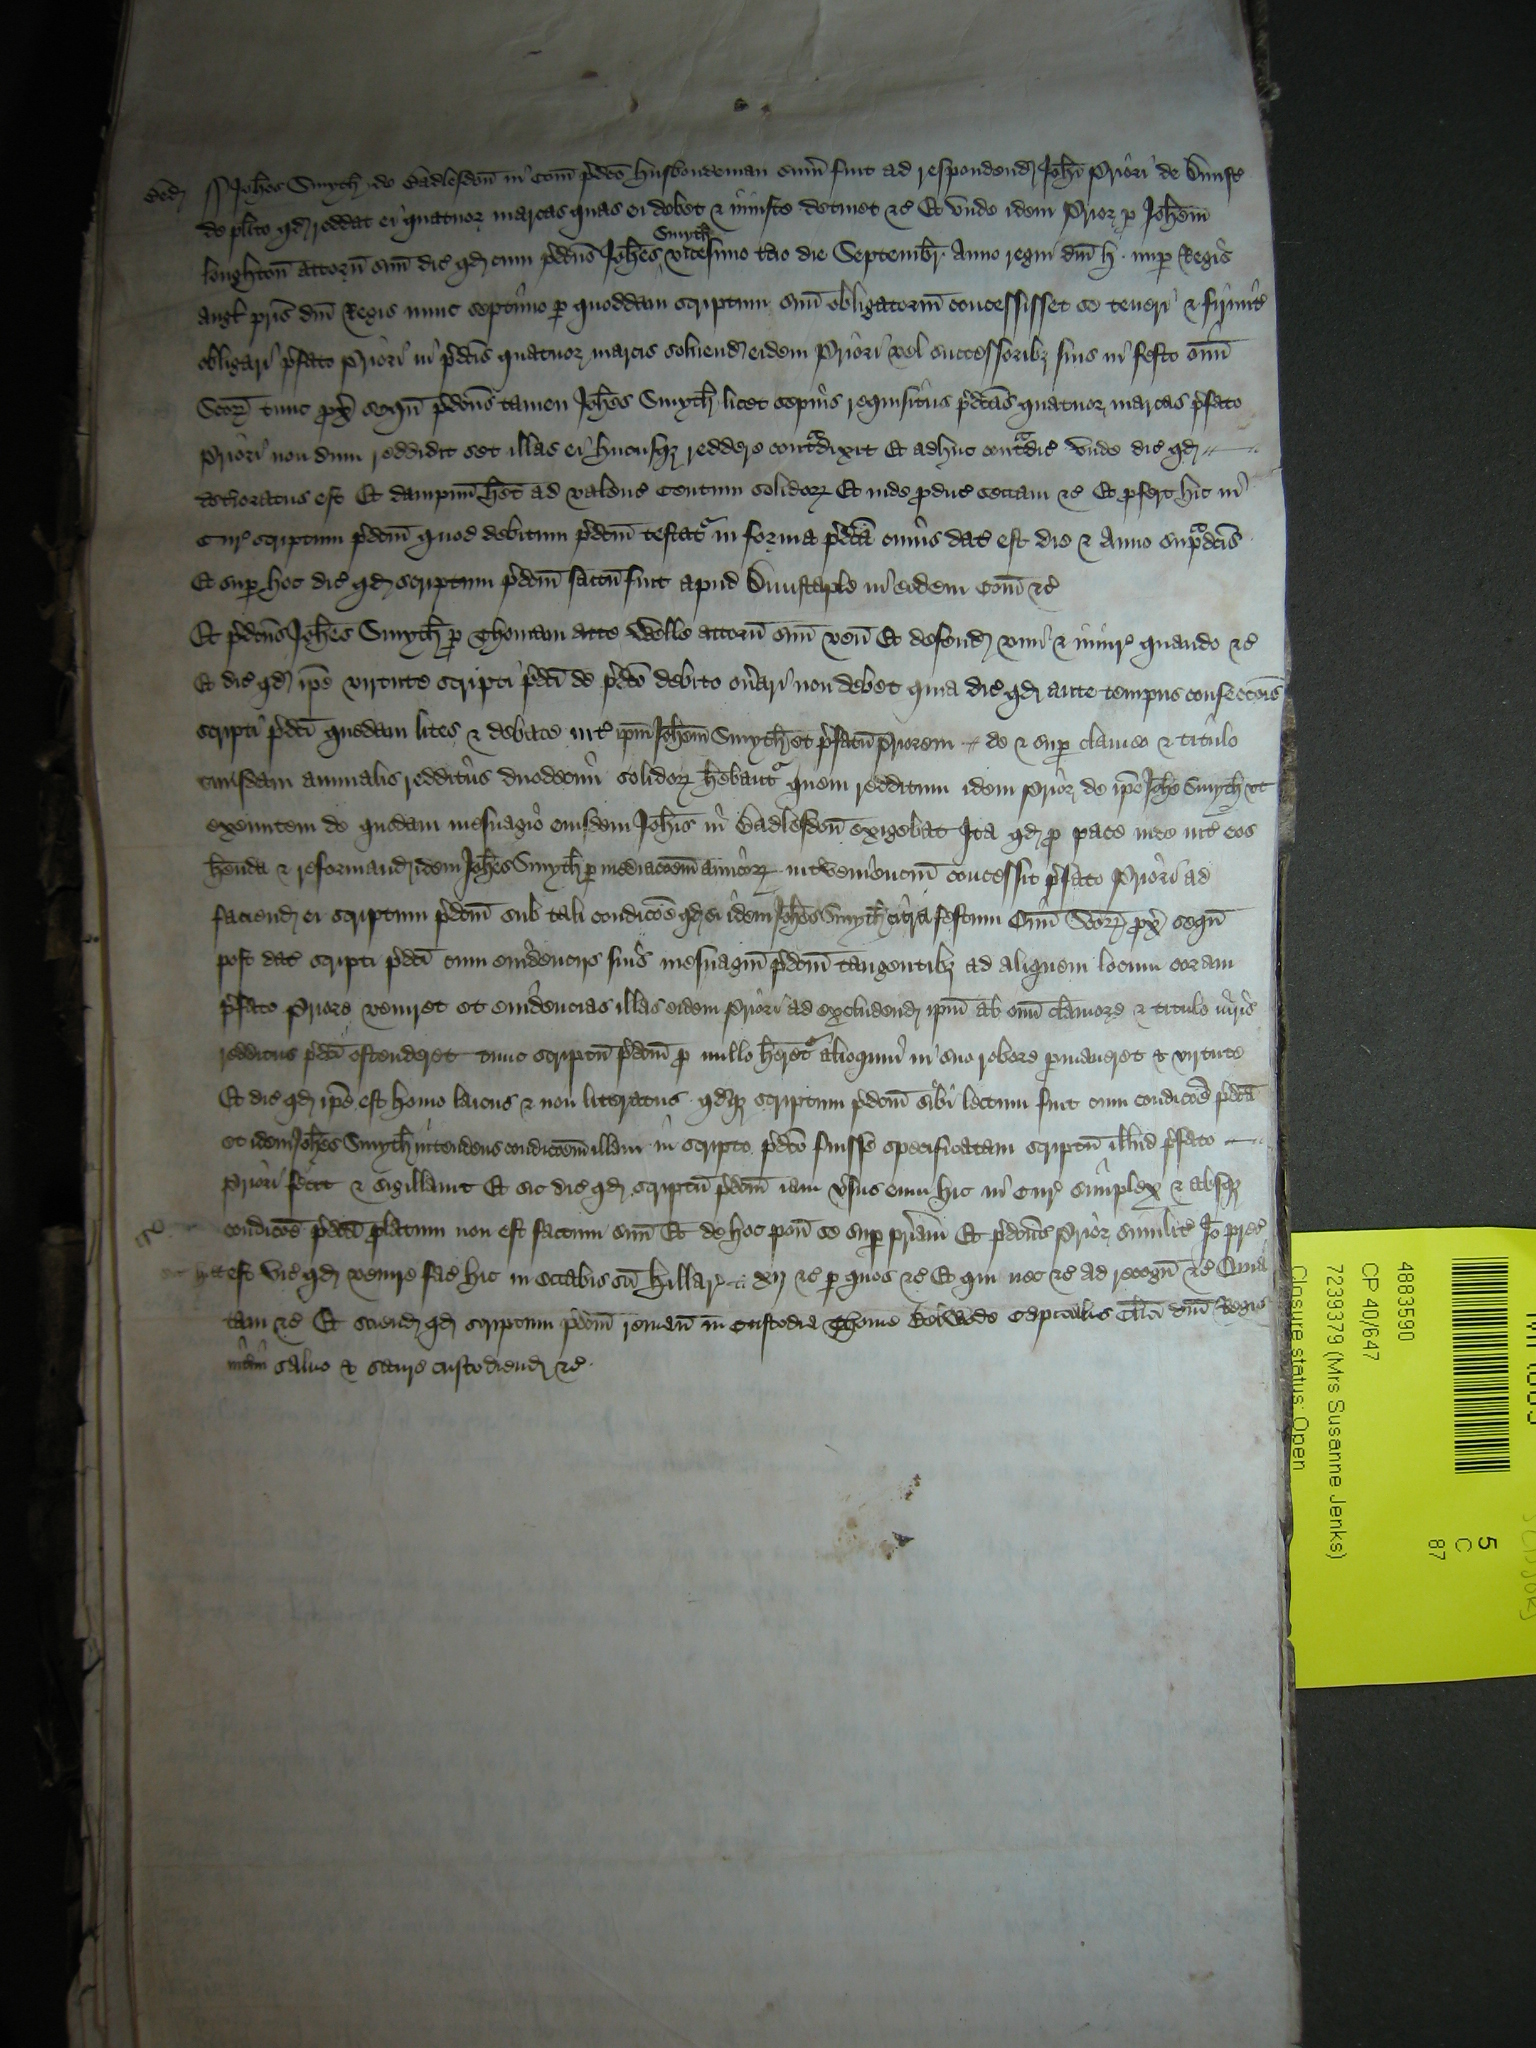 Bed ss Johes Smyth de Badlesdon in Com pdco husbondman sum fuit ad respondend Johi Priori de Dunste
de plito qd reddat ei quatuor marcas quas ei debet & iniuste detinet &c Et unde idem Prior p Johem
Loughton attorn suu dic qd cum pdcus Johes Smyth vicesimo die Septembr Anno regni dni H nup Regis
Angl pris dni Regis nunc septimo p quoddam scriptum suu obligatoriu concessisset se teneri & firmit
obligari pfato Priori in pdcis quatuor marcis solvend eidem Priori vel successoribz suis in festo Omi
Scor tunc px sequ pdcus tamen Johes Smyth licet sepius requisitus pdcas quatuor marcas pfato
Priori nondum reddidit set illas ei hucusqz reddere contradixit Et adhuc contradic unde dic qd
deterioratus est Et dampnu het ad valenc Centum solidor Et inde pduc sectam &c Et pfert hic in
Cur scriptum pdcm quod debitum pdcm testatr in forma pdca cuius dat est die & Anno supradcis
Et sup hoc dic qd scriptum pdcm factu fuit apud Dunstaple in eodem Com &c
Et pdcus Johes Smyth p Thomam atte Welle attorn suu ven Et defend vim & iniur quando &c
Et dic qd ipe virtute scripti pdci de pdco debito onari non debet quia dic qd ante tempus confeccois
scripti pdci quedam lites & debate int ipm Johem Smyth et pfatu Priorem de & sup clameo & titulo
cuiusdam annualis redditus duodecim solidor hebantr quem redditum idem Prior de ipo Johe Smyth ut
exeuntem de quodam mesuagio eiusdem Johis in Badlesdon exigebat Ita qd p pace inde int eos
henda & reformand idem Johes Smyth p mediacoem amicor intervenienciu concessit pfato Priori ad
faciend ei scriptum pdcm sub tali condicoe qd si idem Johes Smyth citra festum Omi Scor px sequ
post dat scripti pdci cum evidenciis suis mesuagiu pdcm tangentibz ad aliquem locum coram
pfato Priore veniret et evidencias illas eidem Priori ad excludend ipm ab omi clamore & titulo iuris
redditus pdci ostenderet tunc scriptu pdcm p nullo heretr alioquin in suo robore pmaneret & virtute
Et dic qd ipe est homo laicus & non literatus qdqz scriptum pdcm sibi lectum fuit cum condicoe pdca
et idem Johes Smyth intendens condicoem illam in scripto pdco fuisse specificatam scriptu illud pfato
Priori fecit & sigillavit Et sic dic qd scriptu pdcm iam vsus eum hic in Cur simplex & absqz
condicoe pdca platum non est factum suu Et de hoc pon se sup priam Et pdcus Prior similit Io prec
est vic qd venire fac hic in Octabis sci Hillar xij &c p quos &c Et qui nec &c ad recogn &c Quia
tam &c Et sciend qd scriptum pdcm reman in custodia Thome capitalis clici dni Regis
salvo & secure custodiend &c
4883590
CP 40/647
7239379 (Mrs Susanne Jenks)
Closure status: Open
5
C
87